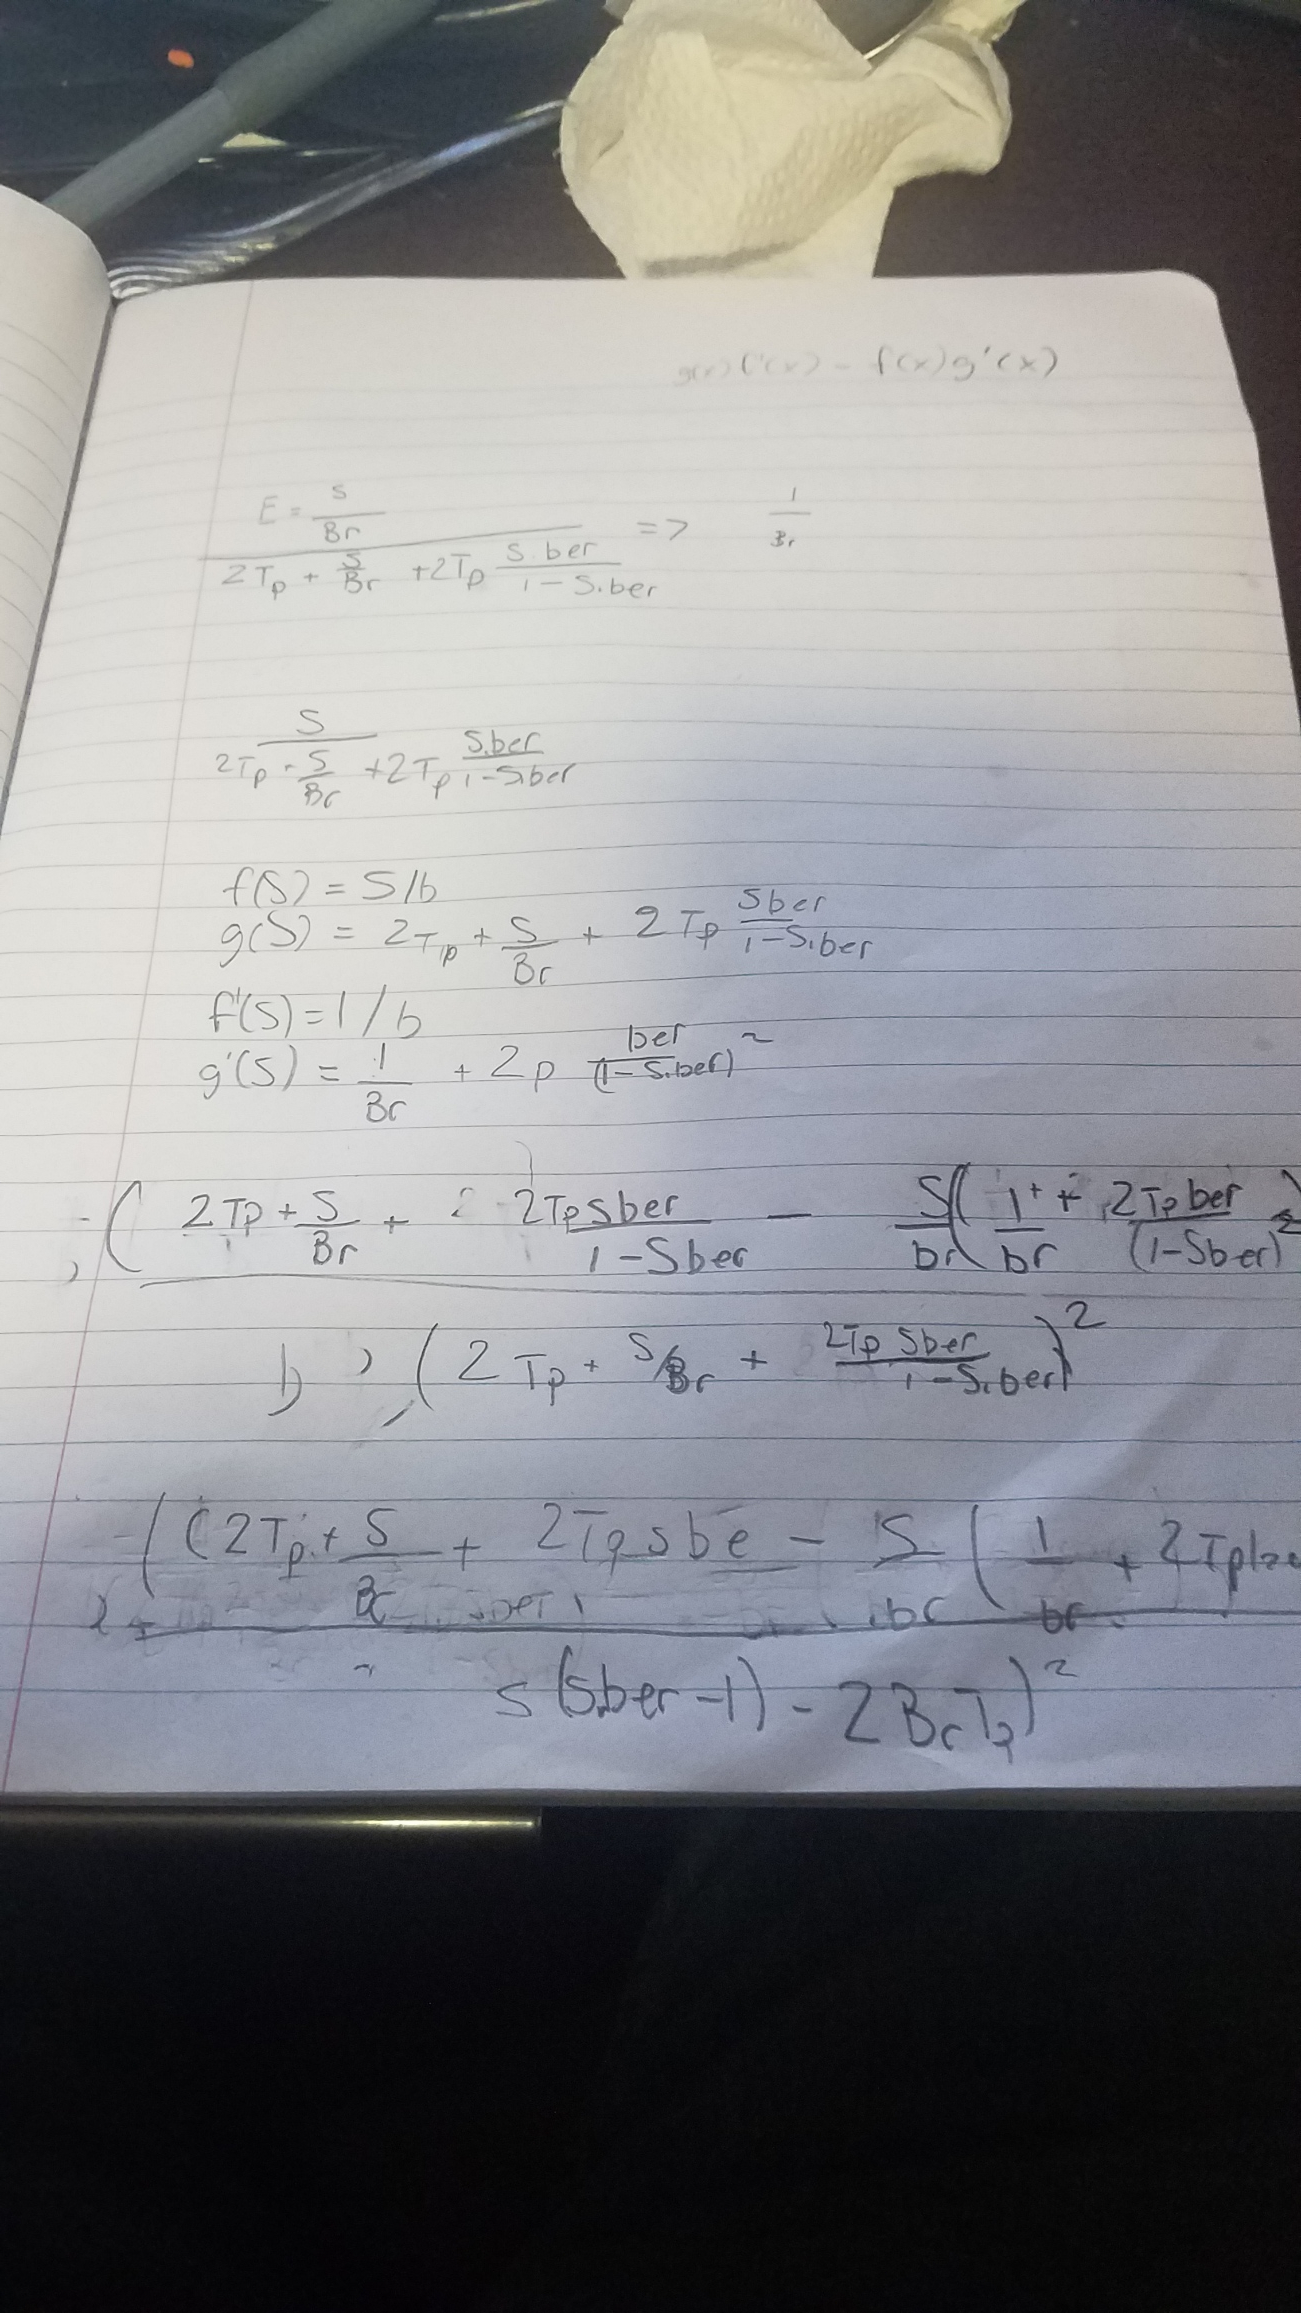 g(x) f'(x) - f(x) g'(x)
E = S/Br / (2Tp + S/Br + 2Tp S.ber/(1-S.ber)) => 1/Br
S / (2Tp - S/Br + 2Tp S.ber/(1-S.ber))
f(S) = S/b
g(S) = 2Tp + S/Br + 2Tp Sber/(1-S.ber)
f'(S) = 1/b
g'(S) = 1/Br + 2p ber/(1-S.ber)^2
(2Tp + S/Br + 2TpSber/(1-Sber) - S/br (1/br + 2Tp ber/(1-Sber)^2)
(2Tp + S/Br + 2Tp Sber/(1-S.ber))^2
((2Tp + S/Br + 2Tp s be - S/br (1/br + 2Tp
s(S.ber-1) - 2BrTp)^2